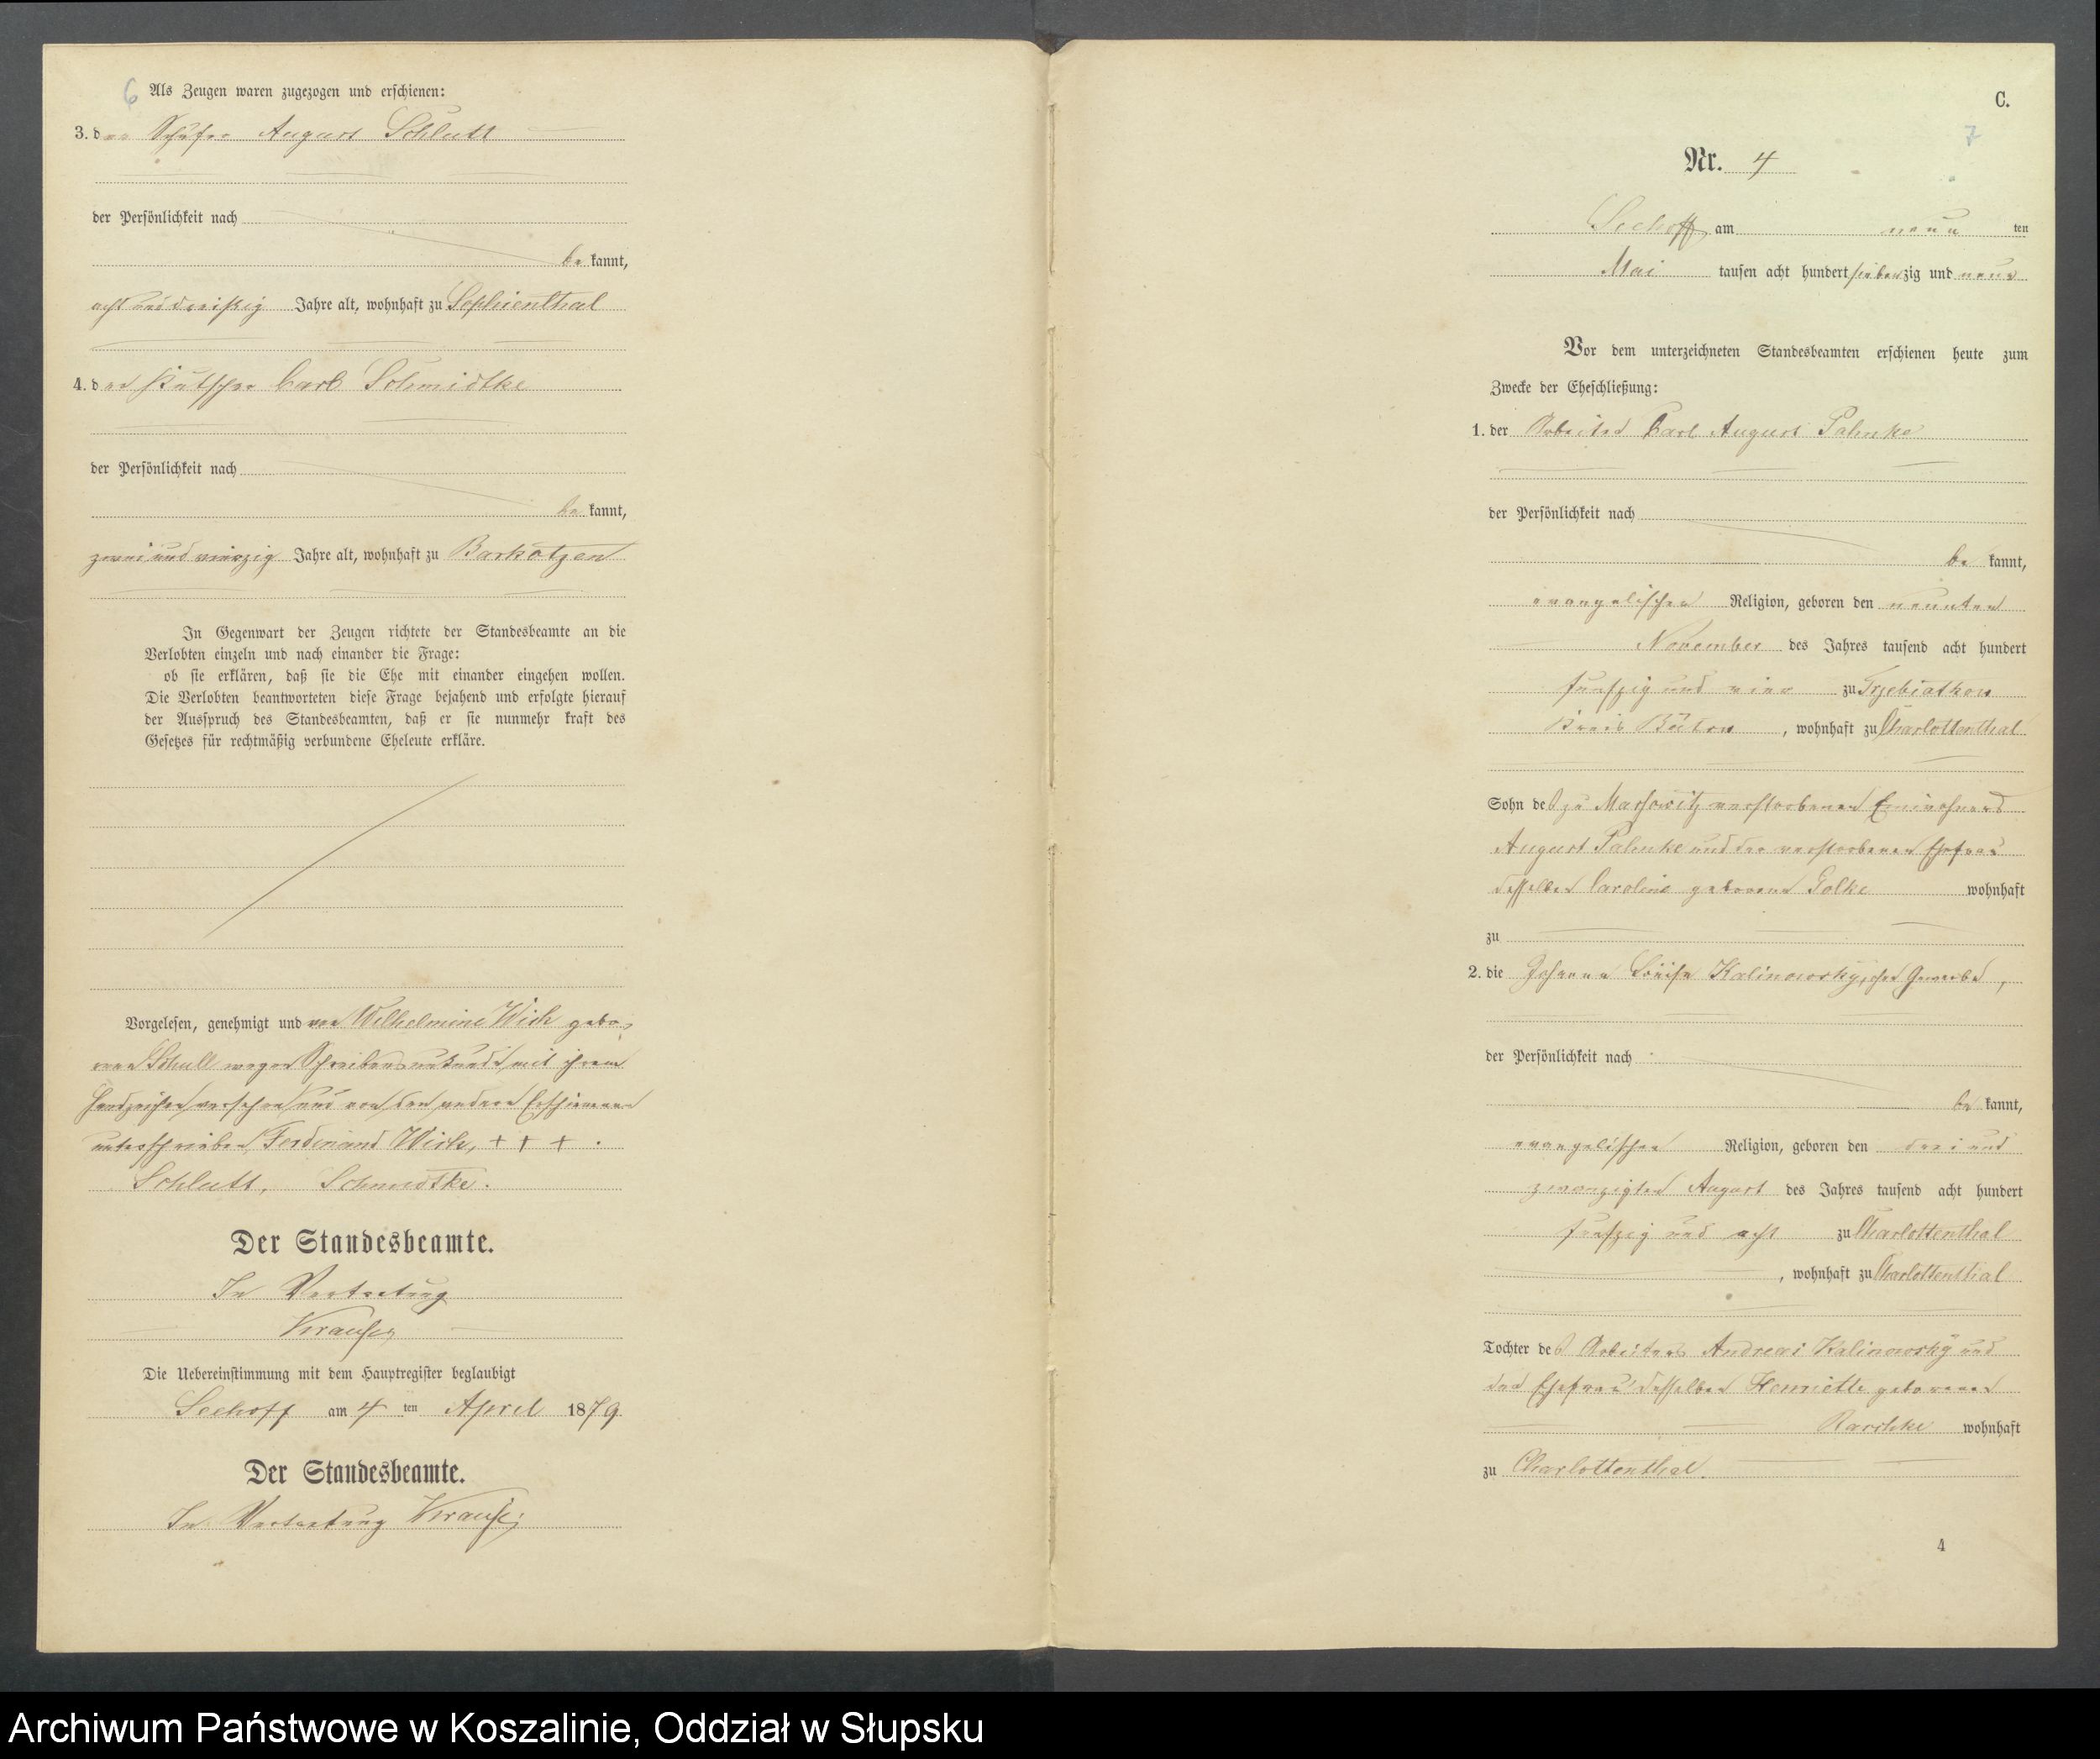 6
Als Zeugen waren zugezogen und erschienen:
3. der Schäfer August Schlutt
der Persönlichkeit nach
be kannt,
acht und dreißig Jahre alt, wohnhaft zu Sophienthal
4. der Kutscher Carl Schmidtke
der Persönlichkeit nach
be kannt,
zwei und vierzig Jahre alt, wohnhaft zu Barkotzen
In Gegenwart der Zeugen richtete der Standesbeamte an die
Verlobten einzeln und nach einander die Frage:
ob sie erklären, daß sie die Ehe mit einander eingehen wollen.
Die Verlobten beantworteten diese Frage bejahend und erfolgte hierauf
der Ausspruch des Standesbeamten, daß er sie nunmehr kraft des
Gesetzes für rechtmäßig verbundene Eheleute erkläre.
Vorgelesen, genehmigt und von Wilhelmine Wick gebo-
rene Schull wegen Schreibensunkunde mit ihrem
Handzeichen versehen und von den andern Erschienenen
unterschrieben Ferdinand Wick, + + + .
Schlutt. Schmidtke.
Der Standesbeamte.
In Vertretung
Krause
Die Uebereinstimmung mit dem Hauptregister beglaubigt
Seehoff am 4 ten April 1879.
Der Standesbeamte.
In Vertretung Krause
C.
7
Nr. 4
Seehoff am neun ten
Mai tausen acht hundert siebenzig und neun
Vor dem unterzeichneten Standesbeamten erschienen heute zum
Zwecke der Eheschließung:
1. der Arbeiter Carl August Pahnke
der Persönlichkeit nach
be kannt,
evangelischer Religion, geboren den neunten
November des Jahres tausend acht hundert
funfzig und vier zu Trzebiatkow
Kreis Bütow, wohnhaft zu Charlottenthal
Sohn des zu Massowitz verstorbenen Einwohners
August Pahnke und der verstorbenen Ehefrau
desselben Caroline geborene Golke wohnhaft
zu
2. die Johanna Louise Kalinowsky, ohne Gewerbe,
der Persönlichkeit nach
be kannt,
evangelischer Religion, geboren den drei und
zwanzigten August des Jahres tausend acht hundert
funfzig und acht zu Charlottenthal
, wohnhaft zu Charlottenthal
Tochter des Arbeiters Andreas Kalinowsky und
der Ehefrau desselben Henriette geborenen
Raschke wohnhaft
zu Charlottenthal.
4
Archiwum Państwowe w Koszalinie, Oddział w Słupsku